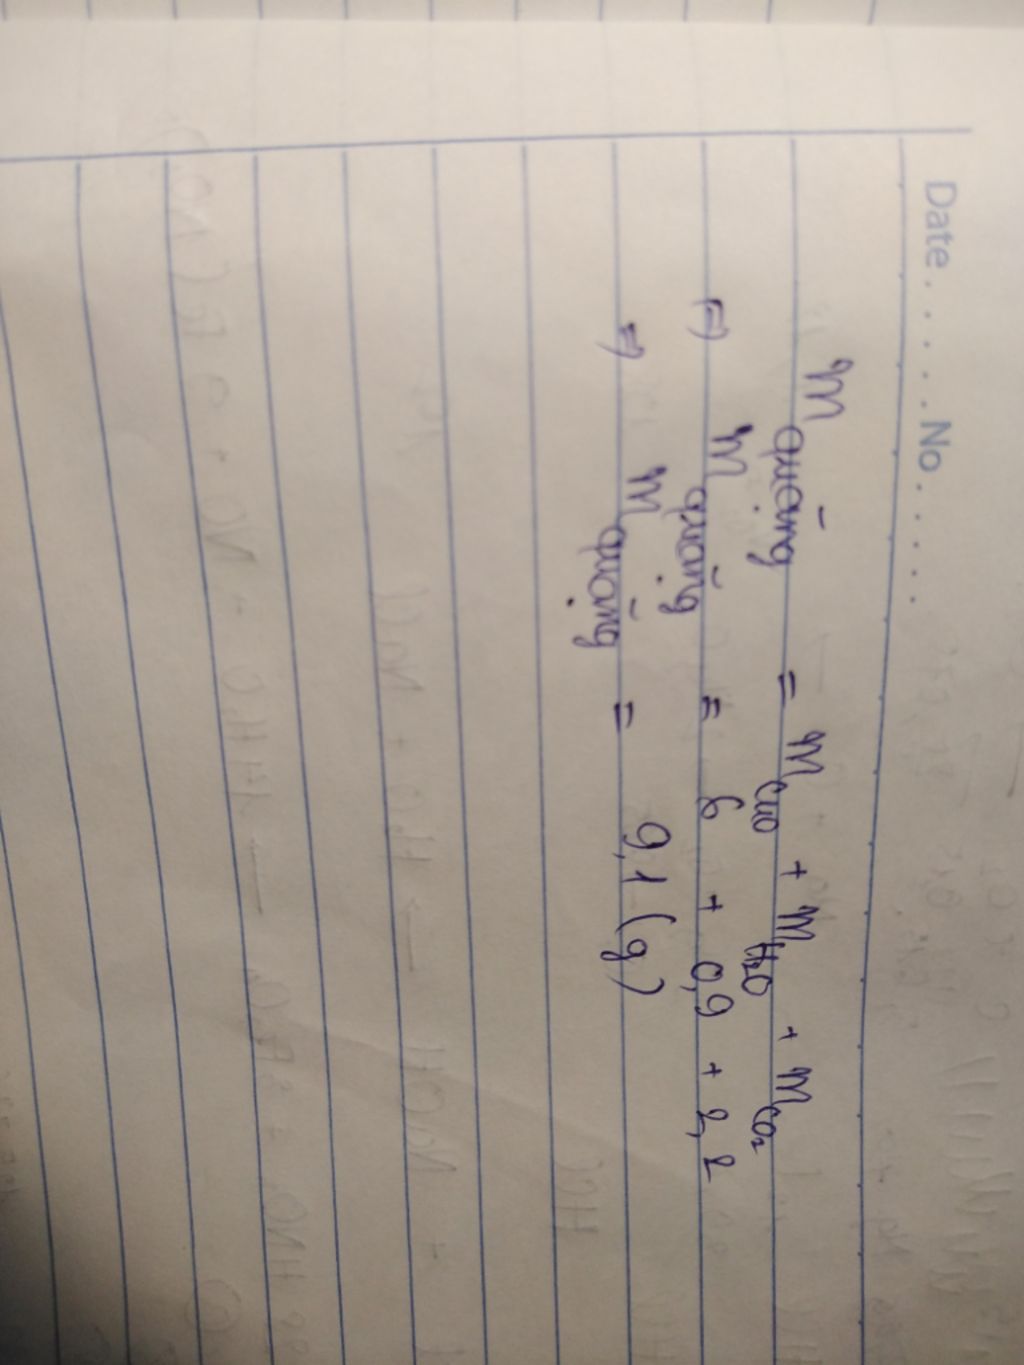 Date . . . . . No . . . . .
m quặng = m CuO + m H₂O + m CO₂
(=) m quặng = 6 + 0,9 + 2,2
=) m quặng = 9,1 (g)